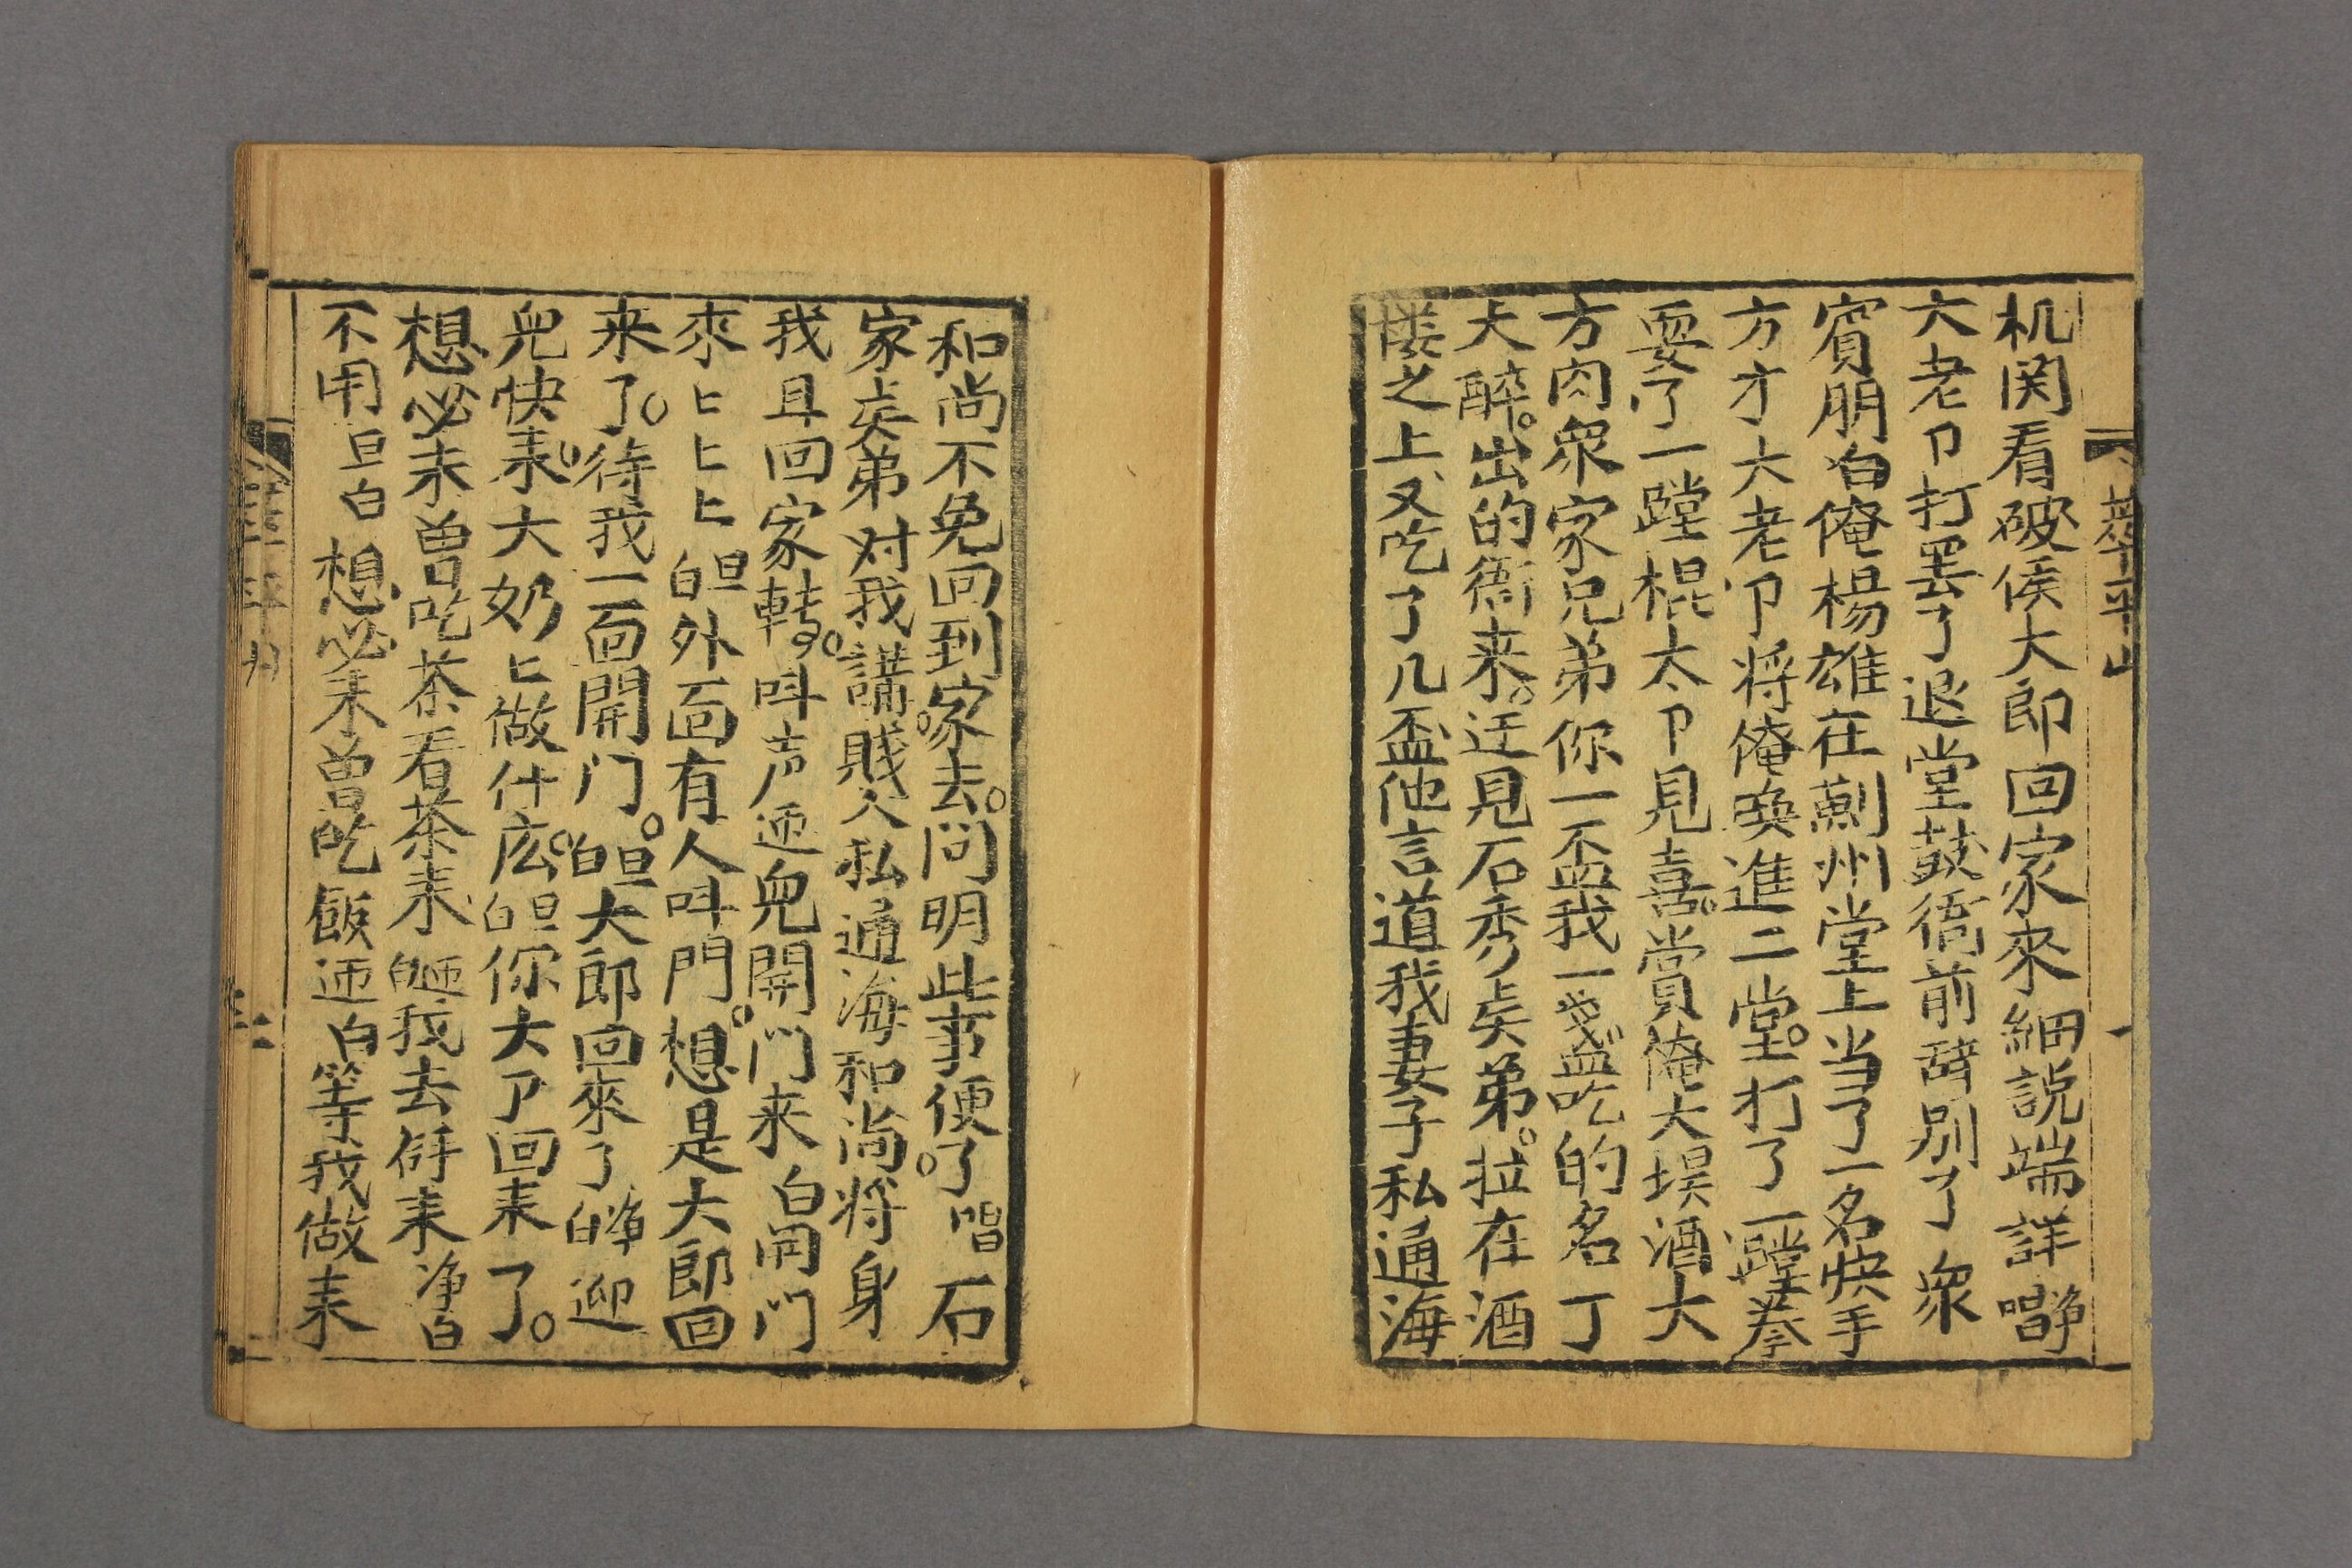 翠平山
一
机関看破侯大郎回家來細説端詳 净唱
大老卩打罢了退堂鼓衙前辞别了衆
賓朋白俺楊雄在薊州堂上当了一名快手
方才大老卩将俺唤進二堂打了一蹚拳
耍了一蹚棍太卩見喜賞俺大埧酒大
方肉衆家兄弟你一盃我一盏吃的名丁
大醉出的衙来迋見石秀矦弟拉在酒
楼之上又吃了几盃他言道我妻子私通海
和尚不免回到家去問明此事便了唱石
家矦弟对我講賤人私通海和尚将身
我且回家轉呌声迊兒開门来白開门
來匕匕匕旦白外面有人呌門想是大郎回
来了待我一面開门旦白大郎回來了净白迎
兒快来大奶匕做什広旦白你大卩回来了
想必未曽吃茶看茶来迊白我去俻来净白
不用旦白想必未曽吃飯迊白等我做来
二